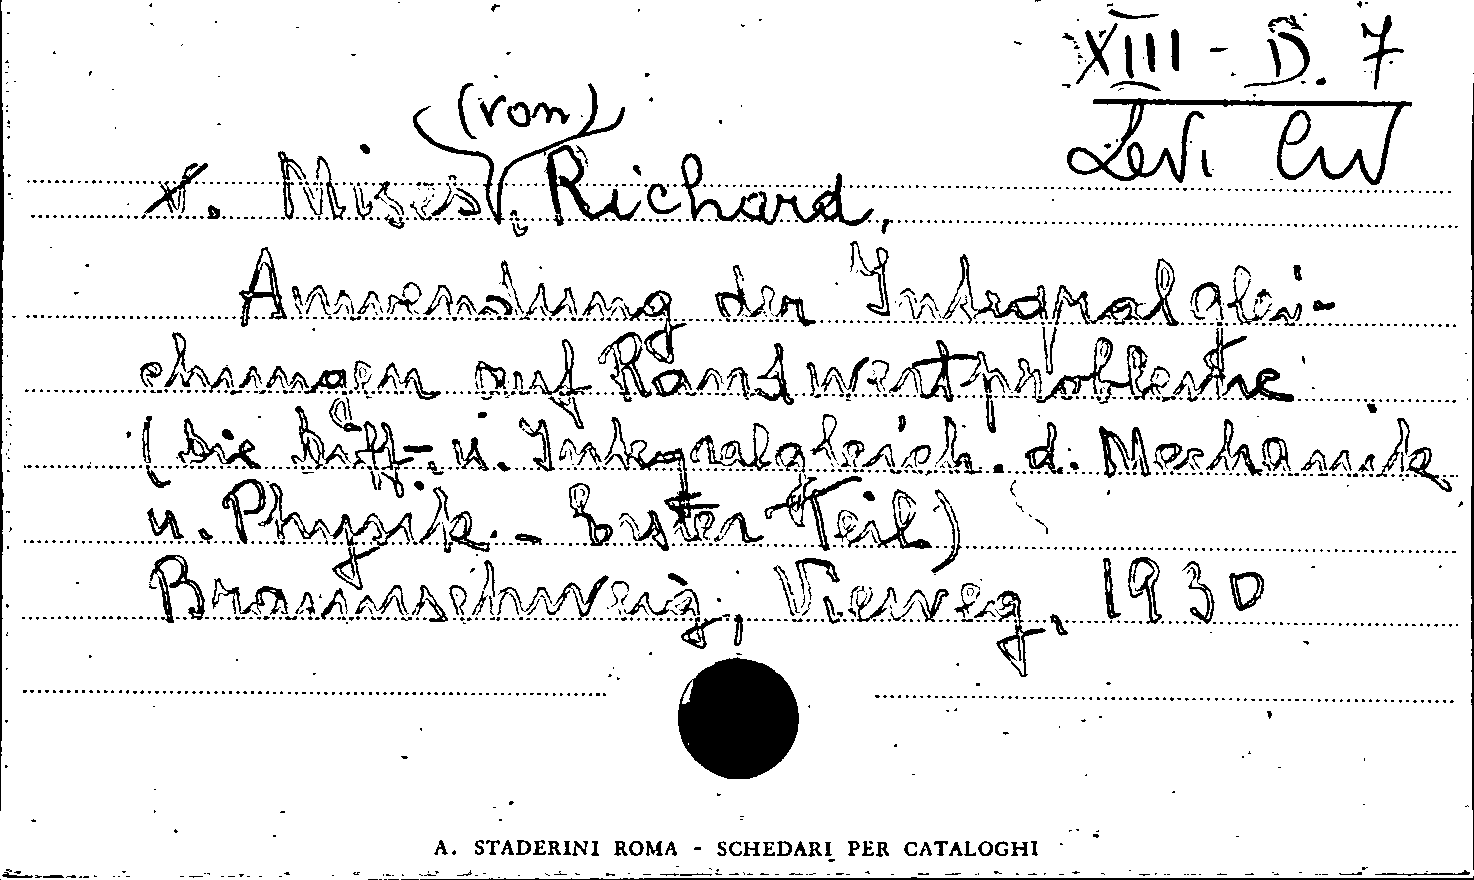 XIII - D. 7
Levi Civ
(von)
v. Mises, Richard,
Anwendung der Integralglei-
chungen auf Randwertprobleme
(Die Diff.- u. Integralgleich. d. Mechanik
u. Physik. - Erster Teil)
Braunschweig, Vieweg, 1930
A. STADERINI ROMA - SCHEDARI PER CATALOGHI